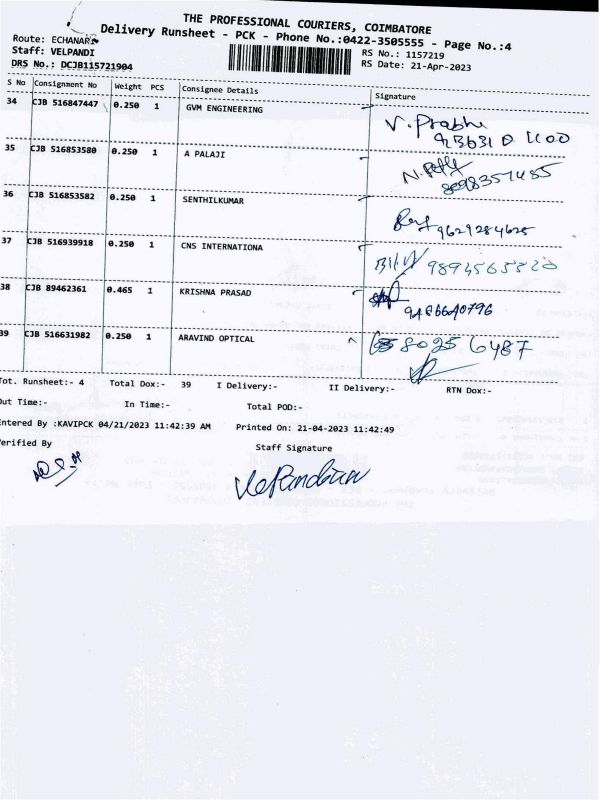 THE PROFESSIONAL COURIERS, COIMBATORE
Delivery Runsheet - PCK - Phone No.:0422-3505555 - Page No.:4
Route: ECHANARI
RS No.: 1157219
Staff: VELPANDI
RS Date: 21-Apr-2023
DRS No.: DCJB115721904
S No Consignment No Weight PCS Consignee Details Signature
34 CJB 516847447 0.250 1 GVM ENGINEERING
V. Prabhu
35 CJB 516853580 0.250 1 A PALAJI
8098357485
36 CJB 516853582 0.250 1 SENTHILKUMAR
9629284625
37 CJB 516939918 0.250 1 CNS INTERNATIONA
38 CJB 89462361 0.465 1 KRISHNA PRASAD
9486640796
39 CJB 516631982 0.250 1 ARAVIND OPTICAL
80256487
Tot. Runsheet:- 4 Total Dox:- 39 I Delivery:- II Delivery:- RTN Dox:-
Out Time:- In Time:- Total POD:-
Entered By :KAVIPCK 04/21/2023 11:42:39 AM Printed On: 21-04-2023 11:42:49
Verified By Staff Signature
VelPandian